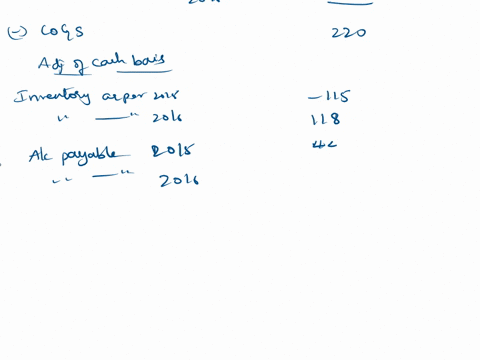 (-) COGS 220
Adj of cash bais
Inventory as per 2015 -115
" — " 2016 118
A/c payable 2015 44
" — " 2016